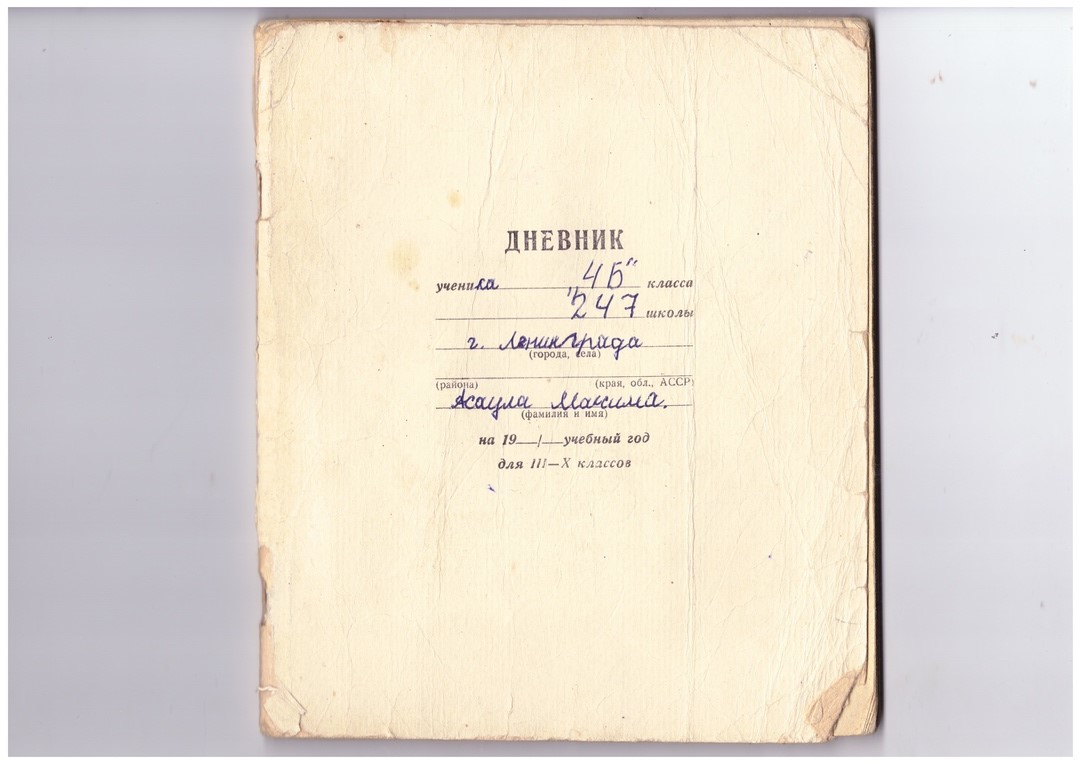 ДНЕВНИК
ученика „4Б" класса
"247 школы
г. Ленинграда
(города, села)
(района) (края, обл., АССР)
Жаула Максима.
(фамилия и имя)
на 19__/__учебный год
для III—X классов